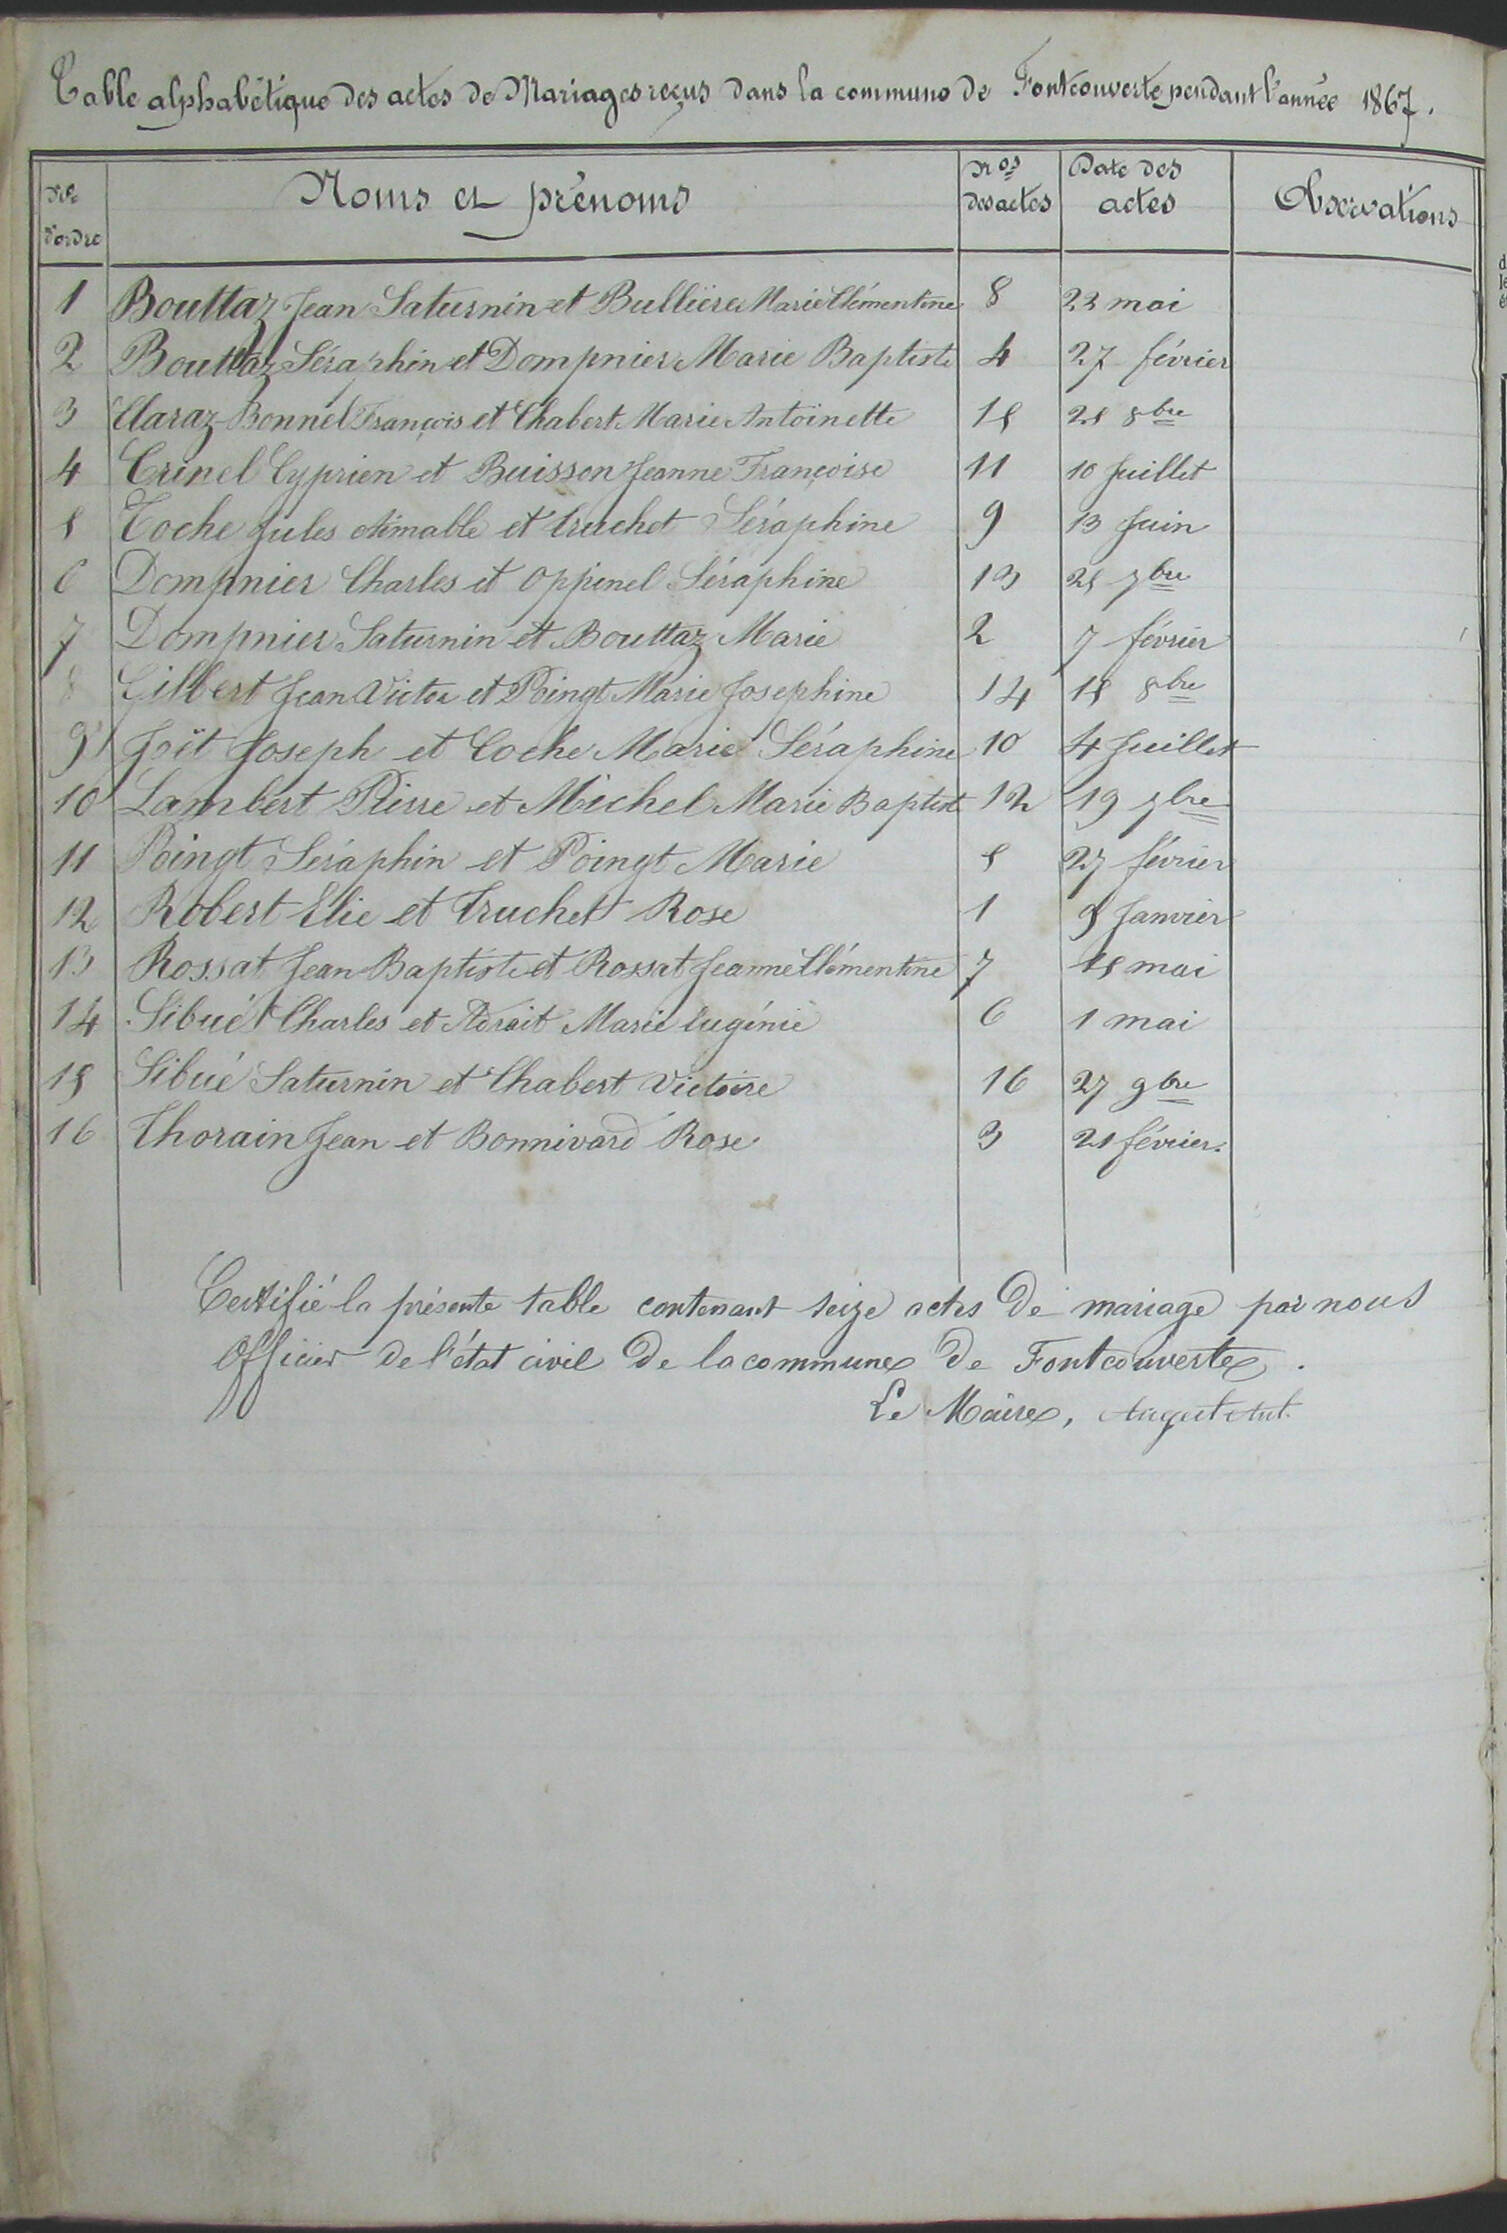 Table alphabétique des actes de Mariages reçus dans la commune de Fontcouverte pendant l'année 1867.
Nos d'ordre Noms et prénoms Nos des actes Date des actes Observations
1 Bouttaz Jean Saturnin et Bullière Marie Clémentine 8 23 mai
2 Bouttaz Séraphin et Dompnier Marie Baptiste 4 27 février
3 Claraz-Bonnel François et Chabert Marie Antoinette 15 25 8bre
4 Crinel Cyprien et Buisson Jeanne Françoise 11 10 Juillet
5 Coche Jules Aimable et Truchet Séraphine 9 13 Juin
6 Dompnier Charles et Oppinel Séraphine 13 25 7bre
7 Dompnier Saturnin et Bouttaz Marie 2 7 février
8 Gilbert Jean Victor et Poingt Marie Josephine 14 15 8bre
9 Joët Joseph et Coche Marie Séraphine 10 4 Juillet
10 Lambert Pierre et Michel Marie Baptiste 12 19 7bre
11 Poingt Séraphin et Poingt Marie 5 27 février
12 Robert Elie et Truchet Rose 1 9 Janvier
13 Rossat Jean Baptiste et Rossat Jeanne Clémentine 7 15 mai
14 Sibué Charles et Adrait Marie Eugénie 6 1 mai
15 Sibué Saturnin et Chabert Victoire 16 27 9bre
16 Thorain Jean et Bonnivard Rose 3 21 février.
Certifié la présente table contenant seize actes de mariage par nous
Officier de l'état civil de la commune de Fontcouverte.
Le Maire,